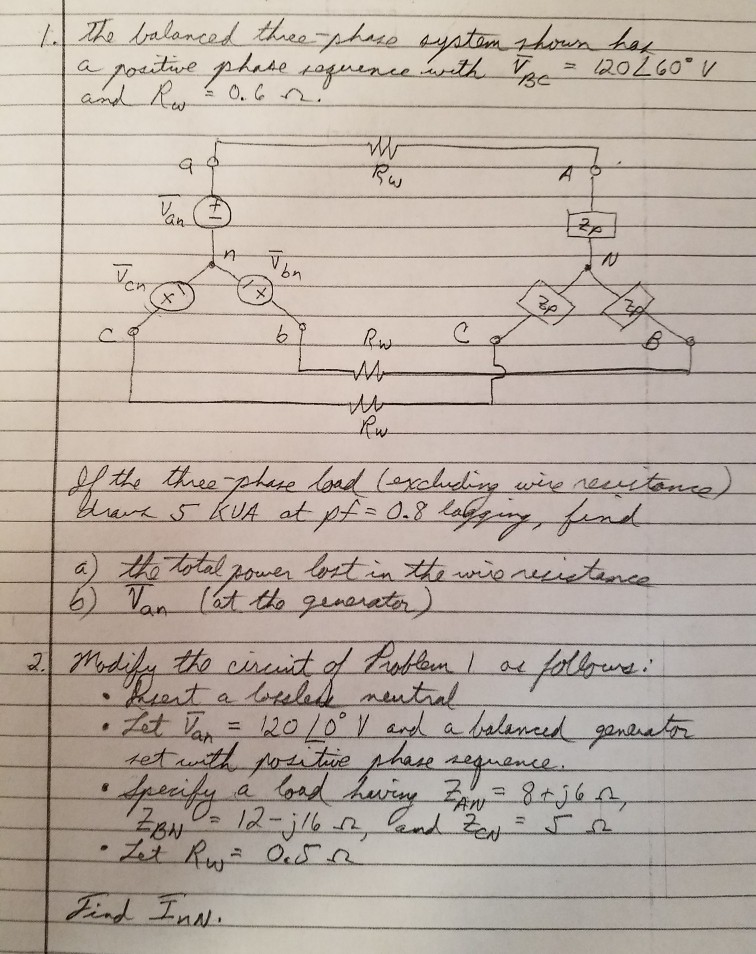 1. The balanced three-phase system shown has
a positive phase sequence with V̅BC = 120∠60° V
and Rw = 0.6 Ω.
a
Rw
A
V̅an
+
-
Zp
n
N
V̅cn
V̅bn
+
-
-
+
Zp
Zp
C
b
Rw
C
B
Rw
If the three-phase load (excluding wire resistance)
draws 5 KVA at pf = 0.8 lagging, find
a) the total power lost in the wire resistance
b) V̅an (at the generator)
2. Modify the circuit of Problem 1 as follows:
• Insert a lossless neutral
• Let V̅an = 120∠0° V and a balanced generator
set with positive phase sequence.
• Specify a load having ZAN = 8+j6 Ω,
ZBN = 12-j16 Ω, and ZCN = 5 Ω
• Let Rw = 0.5 Ω
Find I̅nN.